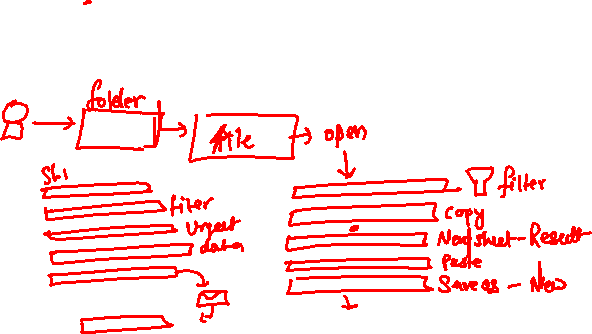 folder
file
open
Sh1
filter
urgent
data
filter
copy
New sheet - Result
Paste
Save as - New